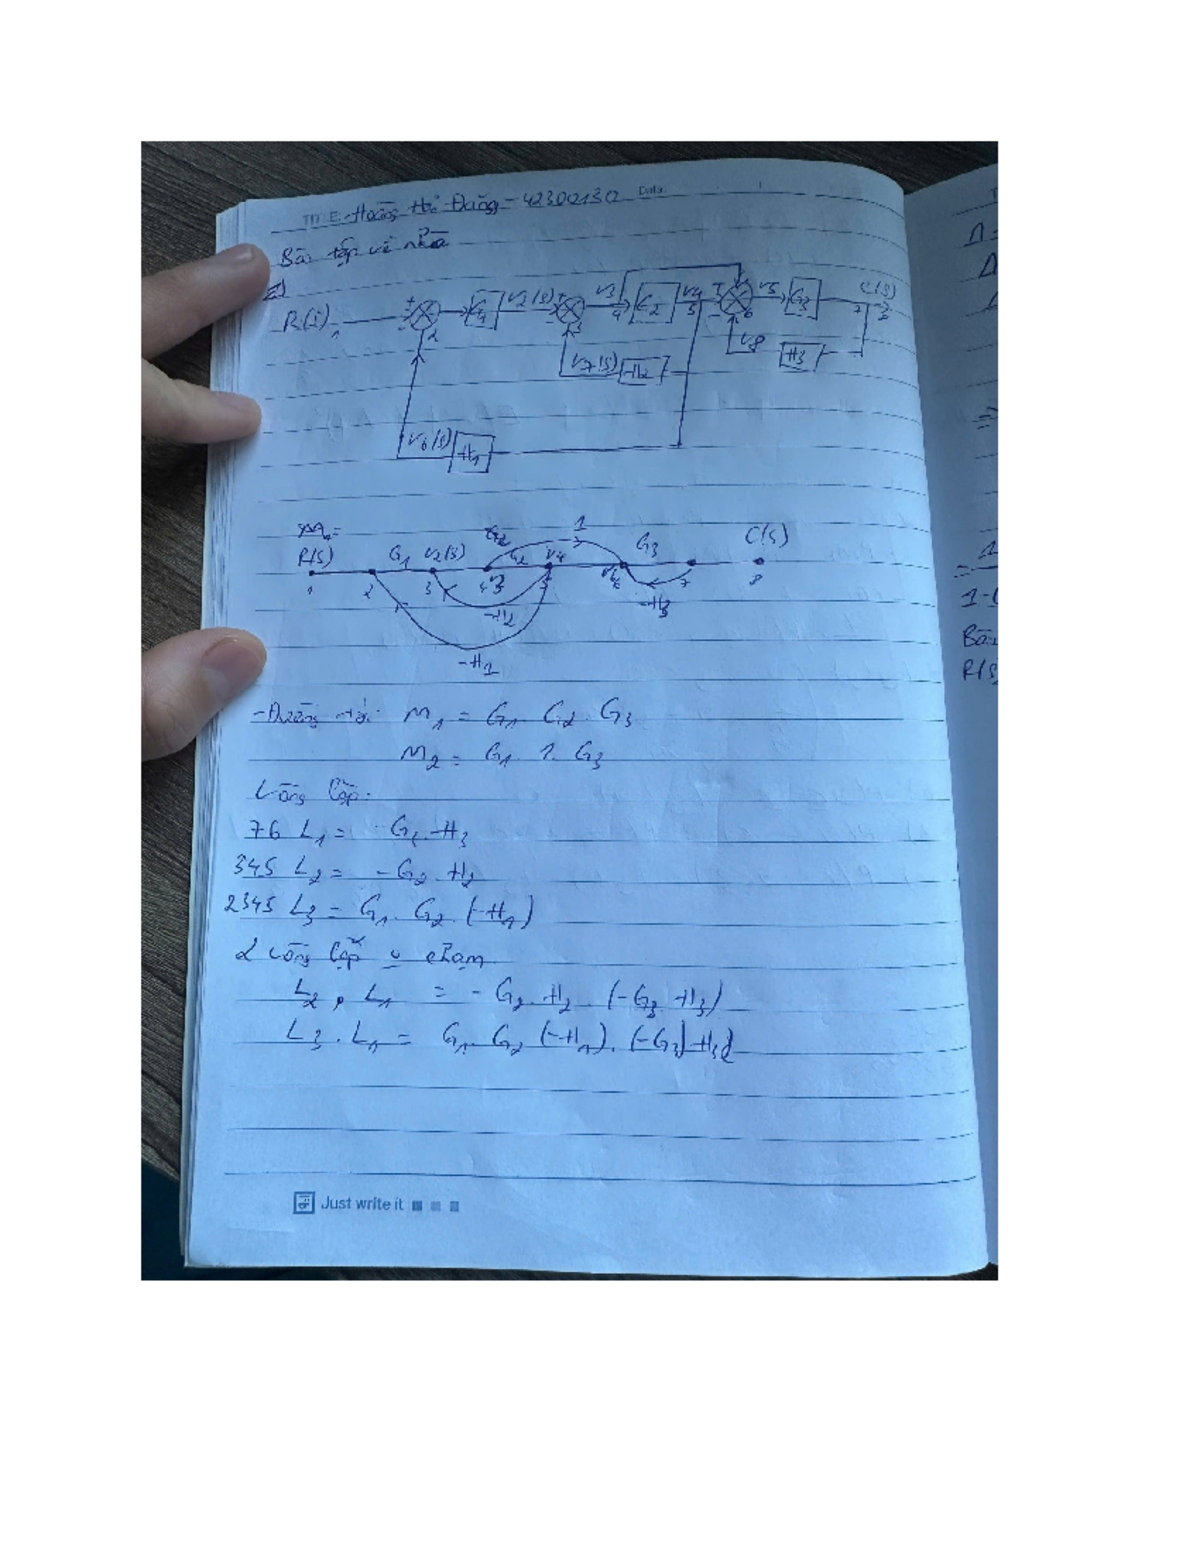 Hoàng Hải Đăng - 42300130 Date
Bài tập về nhà
2)
R(s) 1 + - 2 G1 V2(s) + - 3 V3 4 G2 V4 5 + - 6 V5 G3 7 C(s) 8
V7(s) H2 V8 H3
V6(s) H1
1
R(s) G1 V2(s) G2 V4 G3 C(s)
1 2 3 4 V3 5 7 8
-H2 -H3
-H1
M1 = G1 G2 . G3
M2 = G1 . 1 . G3
Vòng lặp:
76 L1 = - G3 . H3
345 L2 = - G2 . H2
2345 L3 = G1 . G2 . (-H1)
2 vòng lặp chạm
L2 . L1 = - G2 . H2 . (-G3 H3)
L3 . L1 = G1 . G2 (-H1) . (-G3) H3
Just write it
Δ=
Δ
=>
1
1-(
R(s)